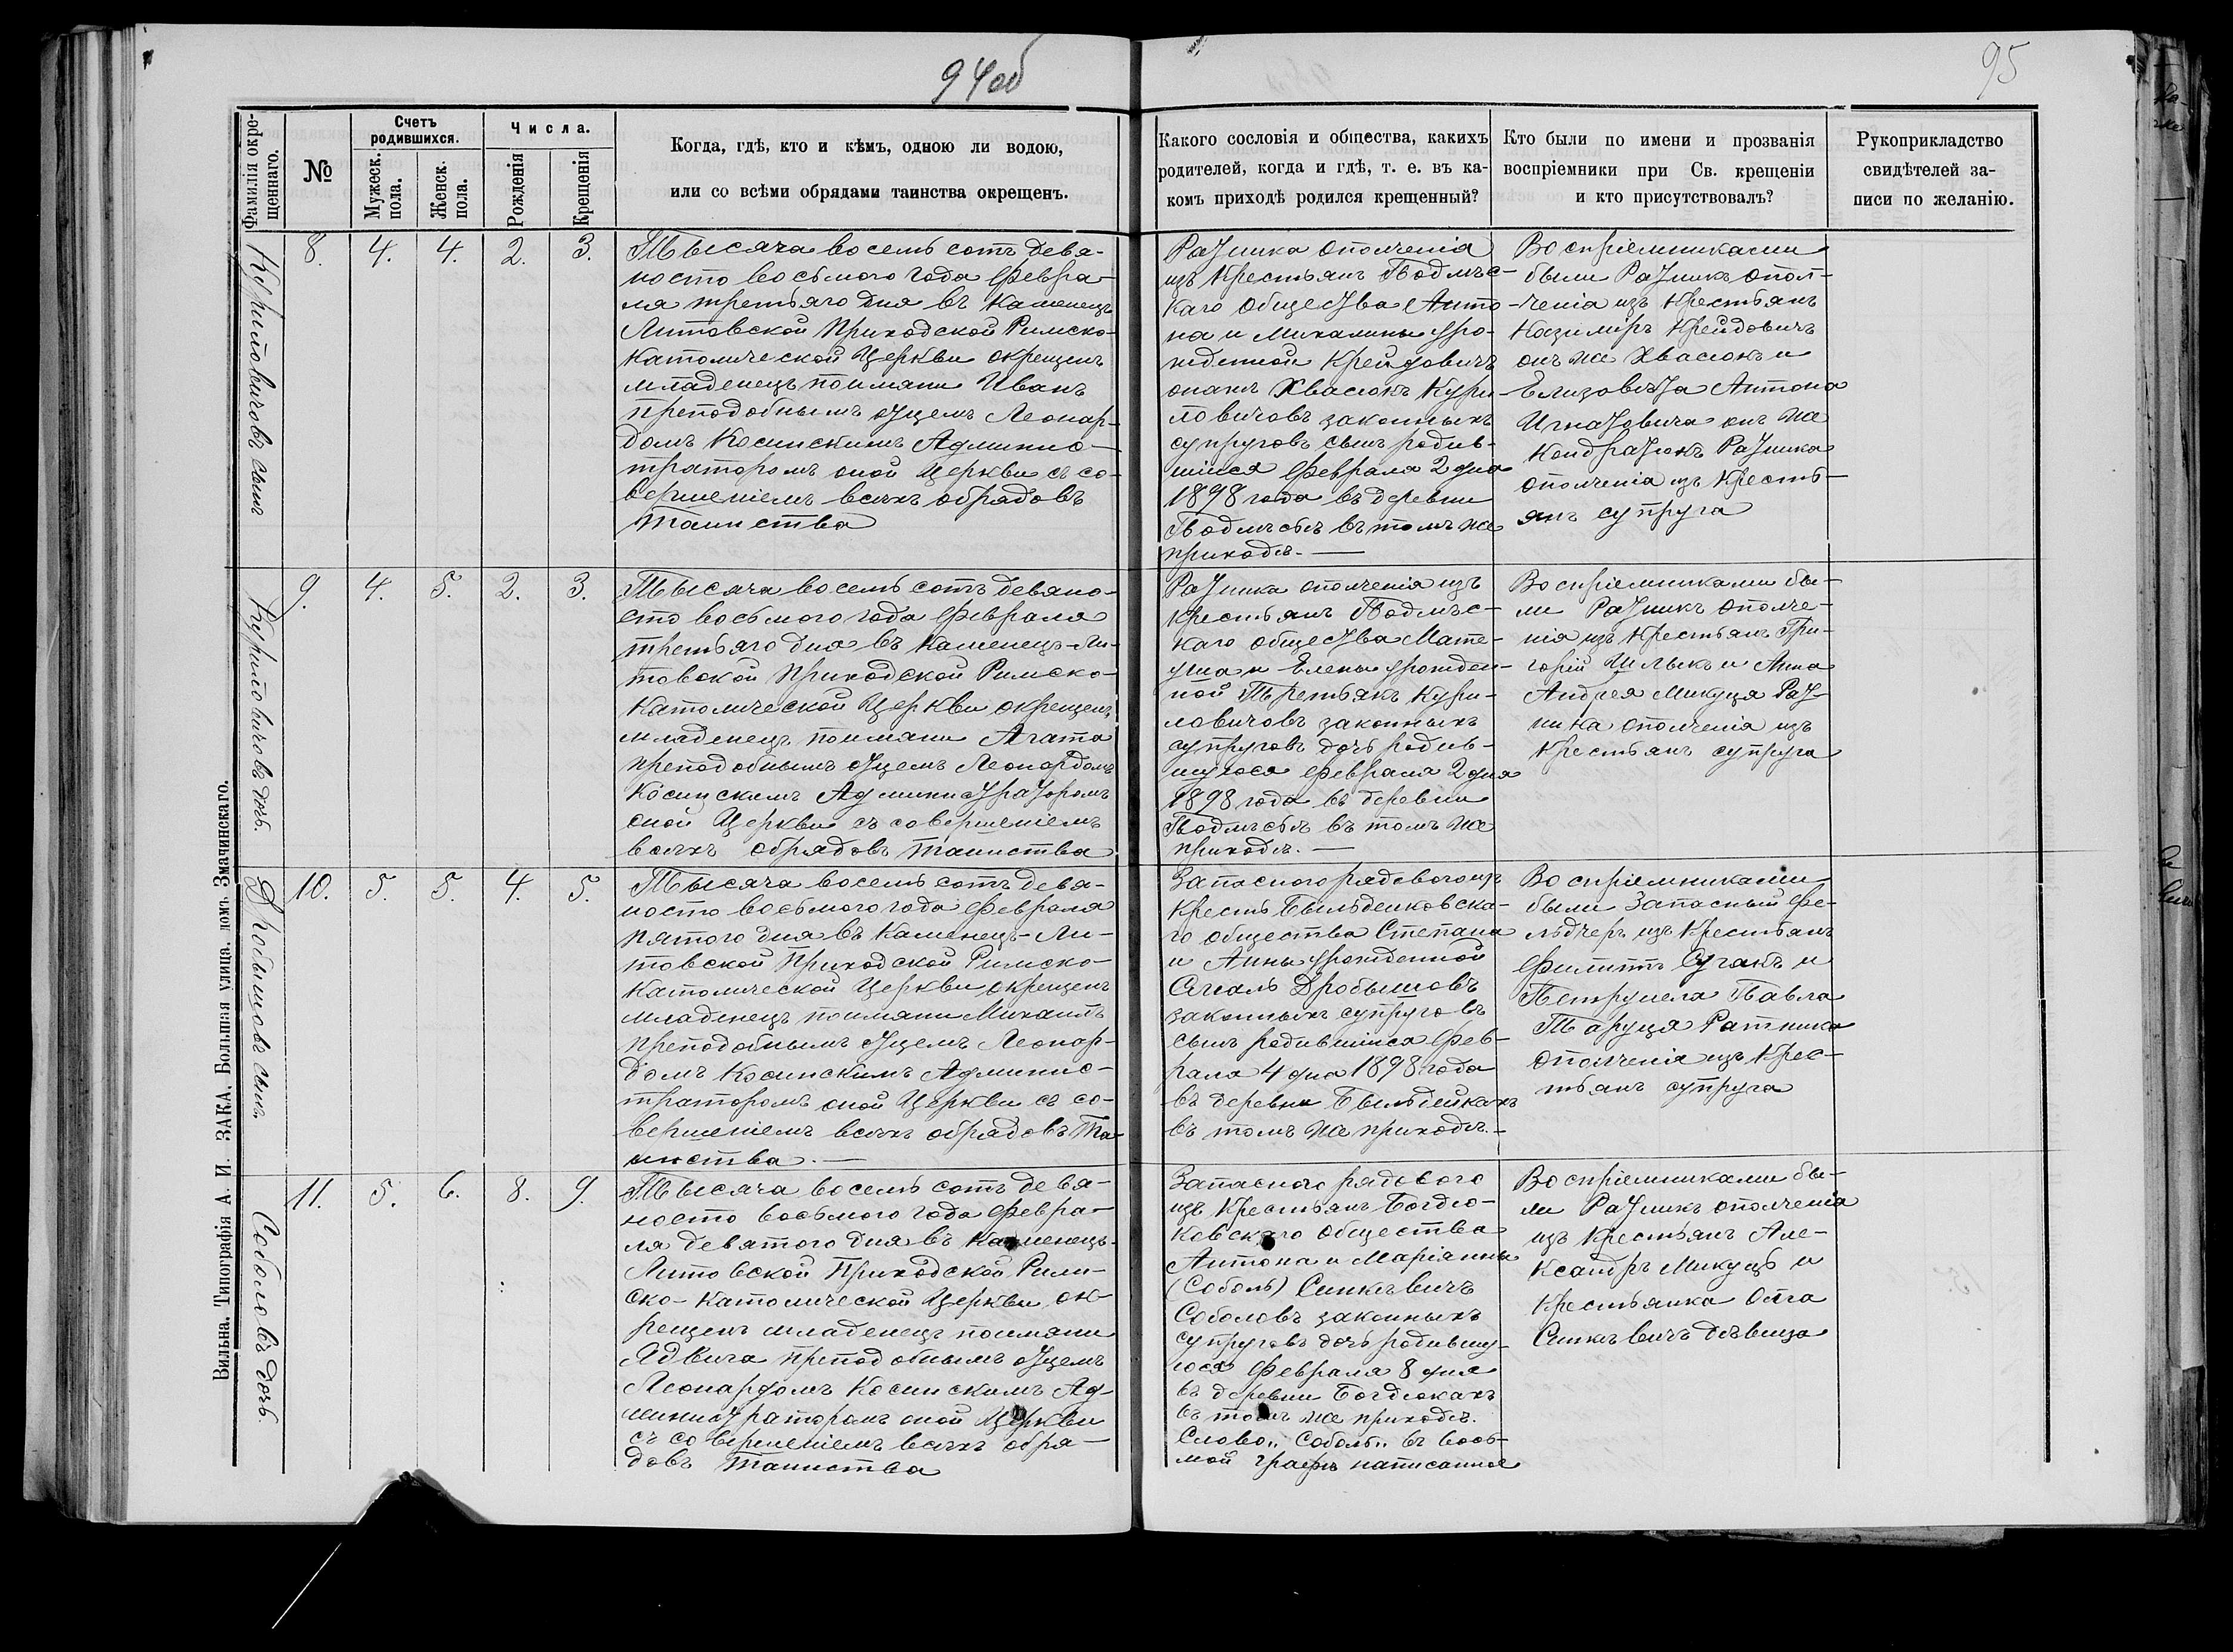 94об
95
Фамиліи окре-
щеннаго.
№
Счетъ
родившихся.
Мужеск.
пола.
Женск.
пола.
Числа.
Рожденія
Крещенія
Когда, гдѣ, кто и кѣмъ, одною ли водою,
или со всѣми обрядами таинства окрещенъ.
Какого сословія и общества, какихъ
родителей, когда и гдѣ, т. е. въ ка-
комъ приходѣ родился крещенный?
Кто были по имени и прозванія
воспріемники при Св. крещеніи
и кто присутствовалъ?
Рукоприкладство
свидѣтелей за-
писи по желанію.
Куриловичовъ сынъ
8. 4. 4. 2. 3.
Тысяча восемь сотъ девя-
носто восьмого года Февра-
ля третьяго дня въ Каменецъ
Литовской Приходской Римско-
Католической Церкви окрещенъ
младенецъ поимяни Иванъ
преподобнымъ отцемъ Леонар-
домъ Косинскимъ Админис-
траторомъ оной Церкви съ со-
вершеніемъ всѣхъ обрядовъ
Таинства
Ратника ополченія
изъ Крестьянъ Подмѣс-
каго общества Анто-
на и Михалины уро-
жденной Крейдовичъ
онаже Хвасюкъ Кури-
ловичовъ законныхъ
супруговъ сынъ родив-
шійся Февраля 2 дня
1898 года въ деревни
Подмѣстѣ въ томъ же
приходѣ. —
Воспріемниками
были Ратникъ опол-
ченія изъ Крестьянъ
Казиміръ Крейдовичъ
онъ же Хвасюкъ и
Елизовета Антона
Игнатовича онъ же
Кондратюкъ Ратника
ополченія изъ Кресть-
янъ супруга
Куриловичовъ дочь.
9. 4. 5. 2. 3.
Тысяча восемь сотъ девяно-
сто восьмого года Февраля
третьяго дня въ Каменецъ-Ли-
товской Приходской Римско-
Католической Церкви окрещенъ
младенецъ поимяни Агата
преподобнымъ отцемъ Леонардомъ
Косинскимъ Администраторомъ
оной Церкви съ совершеніемъ
всѣхъ обрядовъ Таинства
Ратника ополченія изъ
Крестьянъ Подмѣс-
каго общества Мате-
уша и Елены урожден-
ной Третьякъ Кури-
ловичовъ законныхъ
супруговъ дочь родив-
шуюся Февраля 2 дня
1898 года въ деревни
Подмѣстѣ въ томъ же
приходѣ. —
Воспріемниками бы-
ли Ратникъ ополче-
нія изъ Крестьянъ Гри-
горій и Анна
Андрея Микуця Рат-
ника ополченія изъ
Крестьянъ супруга
Дробышовъ сынъ.
10. 5. 5. 4. 5.
Тысяча восемь сотъ девя-
носто восьмого года Февраля
пятого дня въ Каменецъ-Ли-
товской Приходской Римско-
Католической Церкви окрещенъ
младенецъ поимяни Михаилъ
преподобнымъ отцемъ Леонар-
домъ Косинскимъ Админис-
траторомъ оной Церкви съ со-
вершеніемъ всѣхъ обрядовъ Та-
инства. —
Запасного рядового изъ
Кресть Бѣльдейковска-
го общества Степана
и Анны урожденной
Сегаль Дробышовъ
законныхъ супруговъ
сынъ родившійся Фев-
раля 4 дня 1898 года
въ деревни Бѣльдейкахъ
въ томъ же приходѣ. —
Воспріемниками
были Запасный Фе-
льдчеръ изъ Крестьянъ
Филиппъ Суганъ и
Петрунеля Павла
Таруця Ратника
ополченія изъ Крес-
тьянъ супруга
Соболовъ дочь.
11. 5. 6. 8. 9.
Тысяча восемь сотъ девя-
носто восьмого года Февра-
ля девятого дня въ Каменецъ-
Литовской Приходской Рим-
ско-Католической Церкви ок-
рещенъ младенецъ поимяни
Ядвига преподобнымъ отцемъ
Леонардомъ Косинскимъ Ад-
министраторомъ оной Церкви
съ совершеніемъ всѣхъ обря-
довъ Таинства
Запасного рядового
изъ Крестьянъ Богдю-
ковскаго общества
Антона и Маріянны
(Соболь) Синкевичъ
Соболовъ законныхъ
супруговъ дочь родившу-
юся Февраля 8 дня
въ деревни Богдюкахъ
въ томъ же приходѣ.
Слово „Соболь„ въ вось-
мой графѣ написанное
Воспріемниками бы-
ли Ратникъ ополченія
изъ Крестьянъ Але-
ксандръ Микуць и
Крестьянка Олга
Синкѣвичъ дѣвица
Вильна. Типографія А. И. ЗАКА, Большая улица, домъ Змачинскаго.